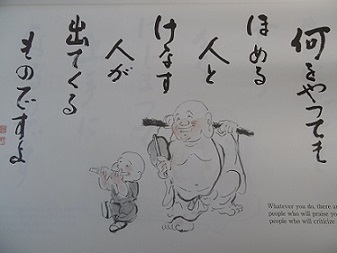 何をやっても
ほめる
人と
けなす
人が
出てくる
ものですよ
Whatever you do, there are
people who will praise yo
people who will criticize